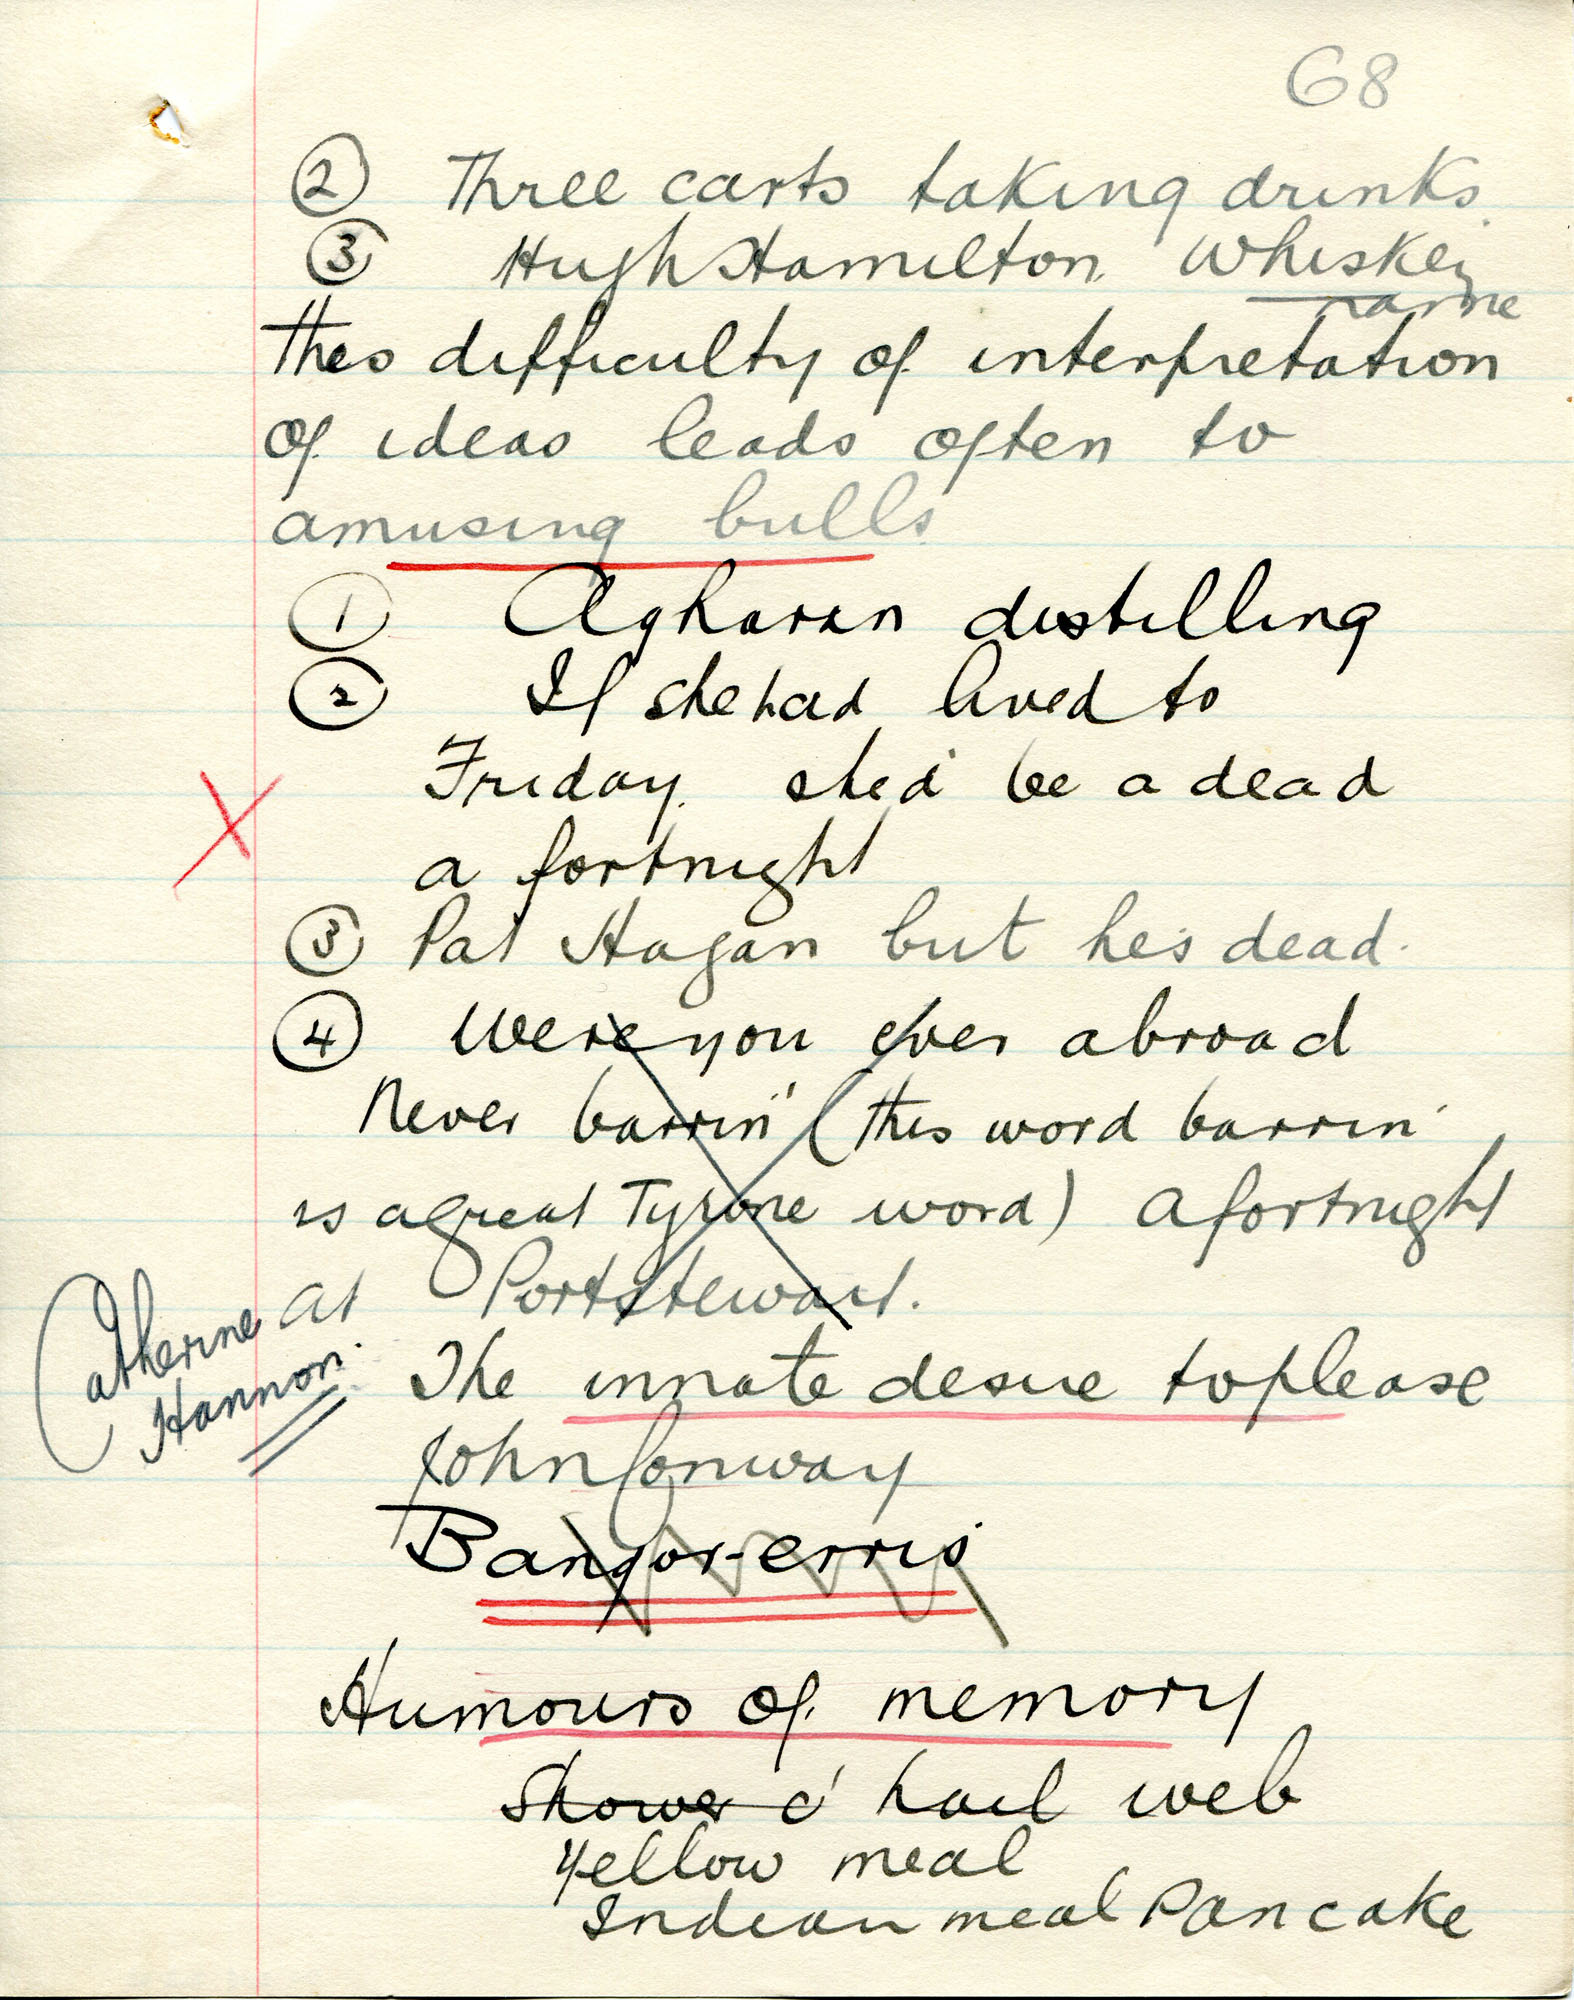 68
② Three carts taking drinks.
③ Hugh Hamilton. Whiskey
name
This difficulty of interpretation
of ideas leads often to
amusing bulls
① Agharan distilling
② If she had lived to
Friday. she'd be a dead
a fortnight
③ Pat Hagan but he's dead.
④ Were you ever abroad
Never barrin' (this word barrin'
is a great Tyrone word) a fortnight
at Portstewart.
Catherine
Hannon.
The innate desire to please
John Conway
Bangor-erris
Humours of memory
Shower o' hail web
Yellow meal
Indian meal Pancake